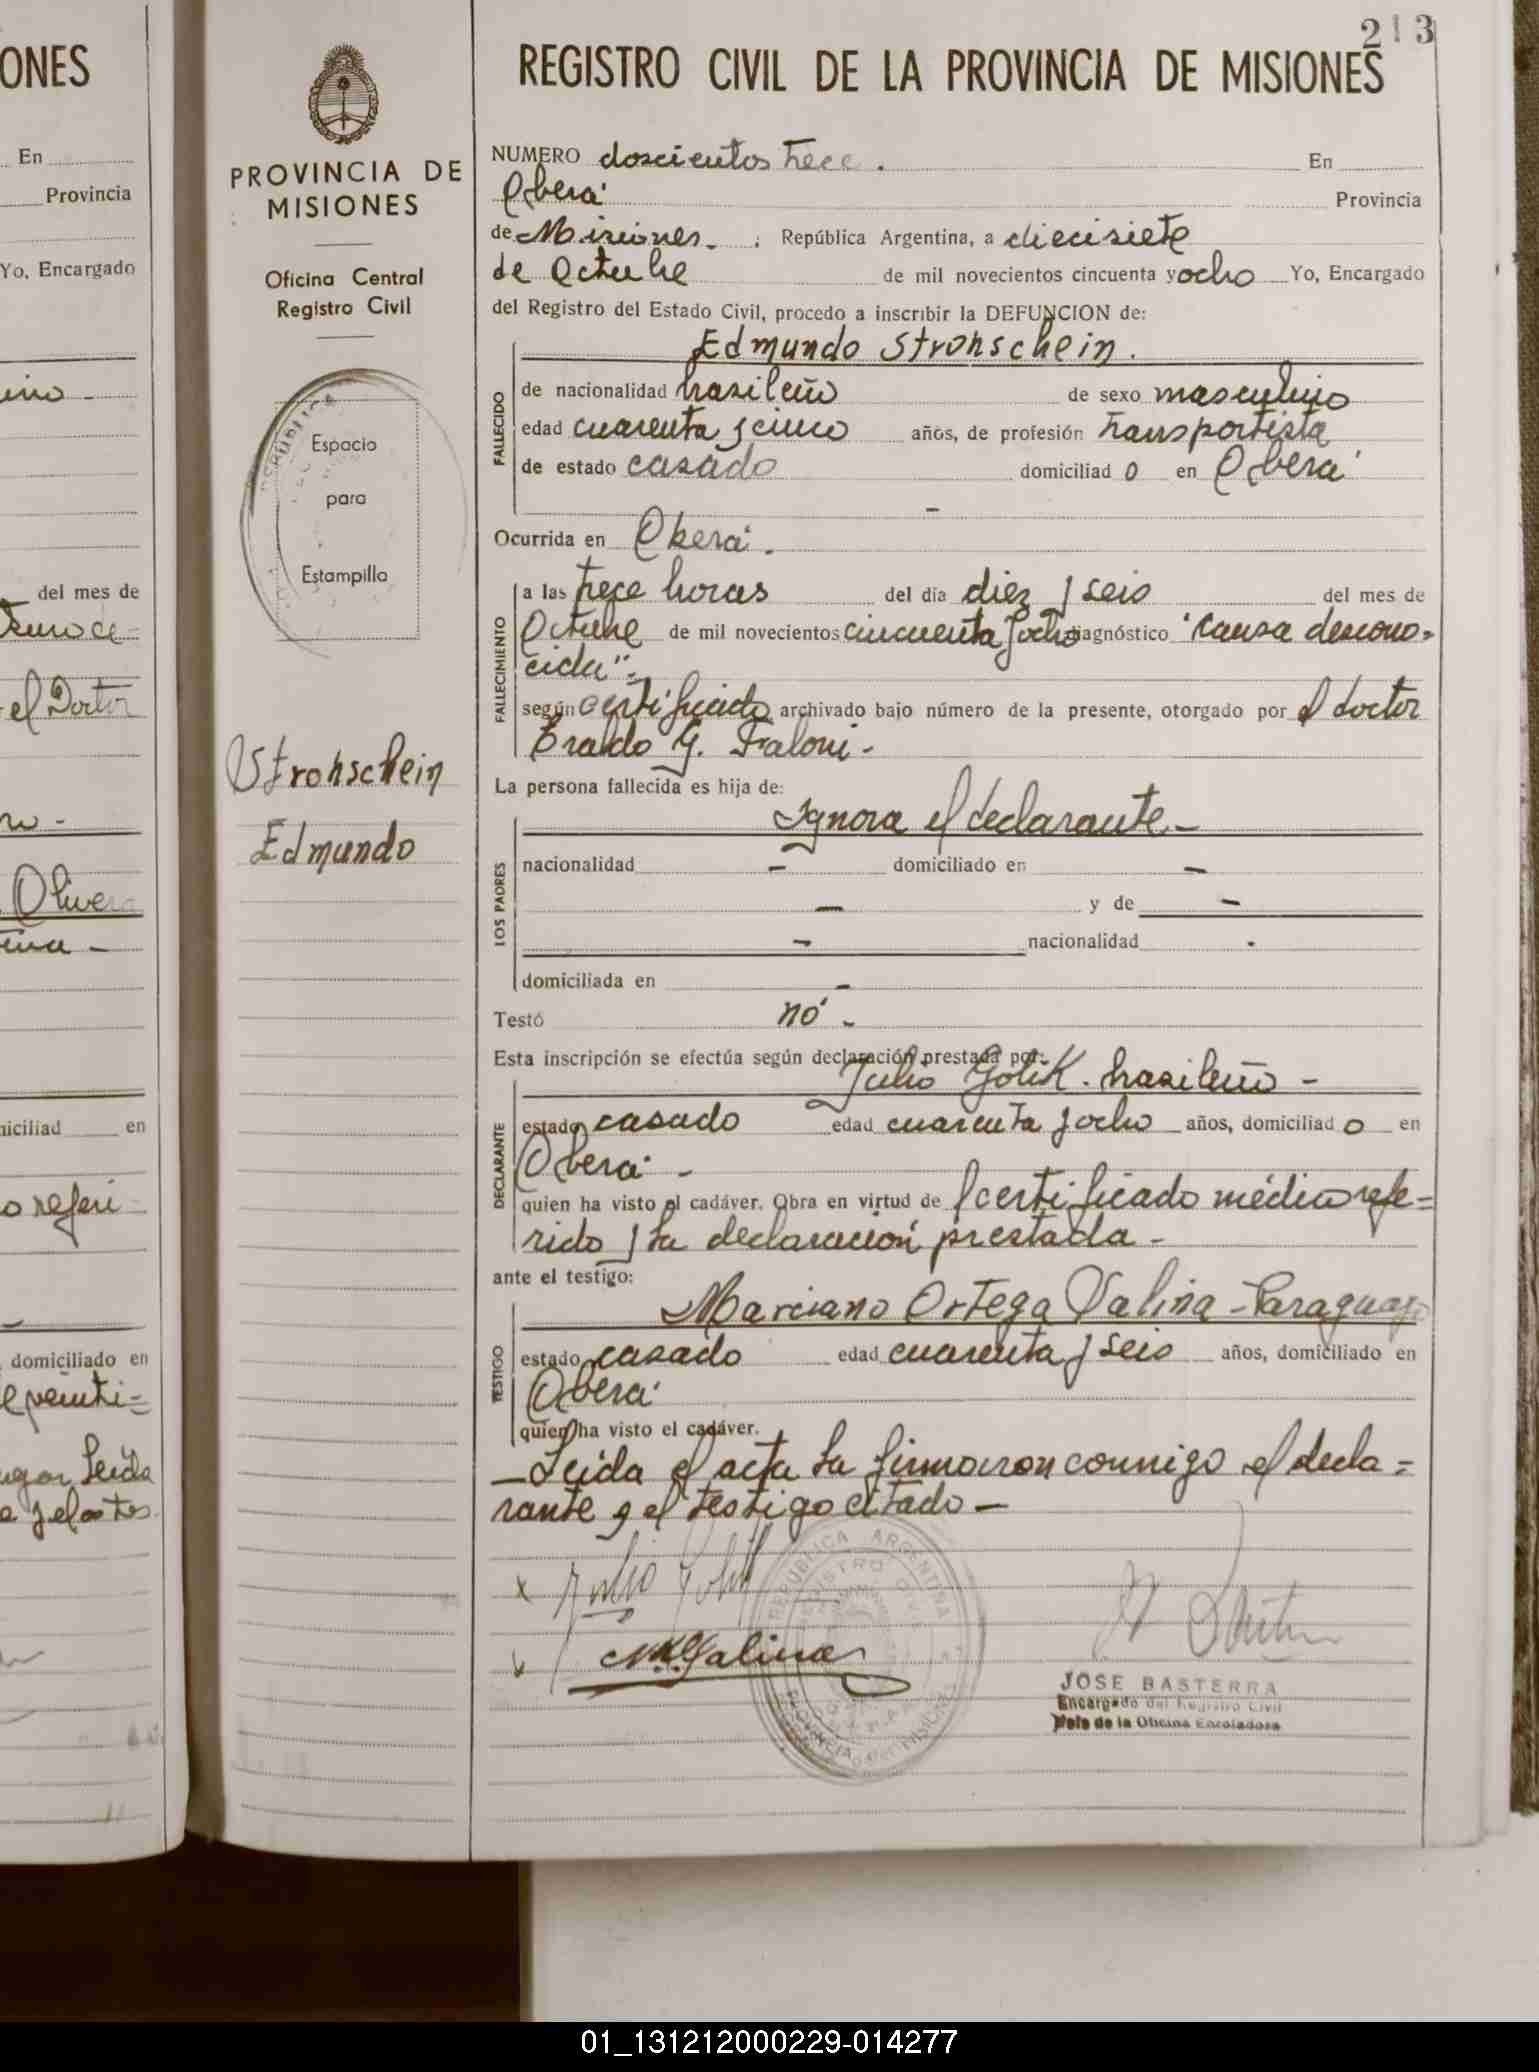 ONES
En
Provincia
Yo, Encargado
del mes de
el Doctor
Olivera
niciliad en
o referi-
domiciliado en
PROVINCIA DE
MISIONES
Oficina Central
Registro Civil
Espacio
para
Estampilla
Strohschein
Edmundo
213
REGISTRO CIVIL DE LA PROVINCIA DE MISIONES
NUMERO doscientos trece. En
Oberá Provincia
de Misiones. República Argentina, a diecisiete
de Octubre de mil novecientos cincuenta y ocho Yo, Encargado
del Registro del Estado Civil, procedo a inscribir la DEFUNCION de:
Edmundo Strohschein.
FALLECIDO
de nacionalidad brasileño de sexo masculino
edad cuarenta y cinco años, de profesión transportista
de estado casado domiciliad o en Oberá
-
Ocurrida en Oberá.
FALLECIMIENTO
a las trece horas del día diez y seis del mes de
Octubre de mil novecientos cincuenta y ocho diagnóstico "causa descono=
cida".
según certificado archivado bajo número de la presente, otorgado por el doctor
Eraldo G. Faloni.-
La persona fallecida es hija de:
LOS PADRES
Ignora el declarante-
nacionalidad - domiciliado en -
- y de -
- nacionalidad -
domiciliada en -
Testó nó-
Esta inscripción se efectúa según declaración prestada por:
DECLARANTE
Julio Golik. brasileño-
estado casado edad cuarenta y ocho años, domiciliad o en
Oberá-
quien ha visto el cadáver. Obra en virtud de el certificado médico refe=
rido y la declaración prestada-
ante el testigo:
TESTIGO
Marciano Ortega Valina - Paraguayo
estado casado edad cuarenta y seis años, domiciliado en
Oberá
quien ha visto el cadáver.
-Leída el acta la firmaron conmigo el decla=
rante y el testigo citado-
Julio Golik
REPUBLICA ARGENTINA
REGISTRO CIVIL
JOSE BASTERRA
Encargado del Registro Civil
Jefe de la Oficina Enroladora
01_131212000229-014277